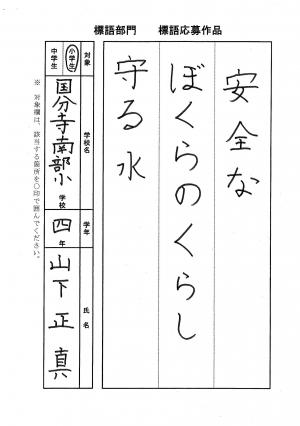 標語部門　標語応募作品
安全な
ぼくらのくらし
守る水
対象
小学生
中学生
学校名
国分寺南部小学校
学年
四年
氏名
山下正真
※　対象欄は、該当する箇所を○印で囲んでください。